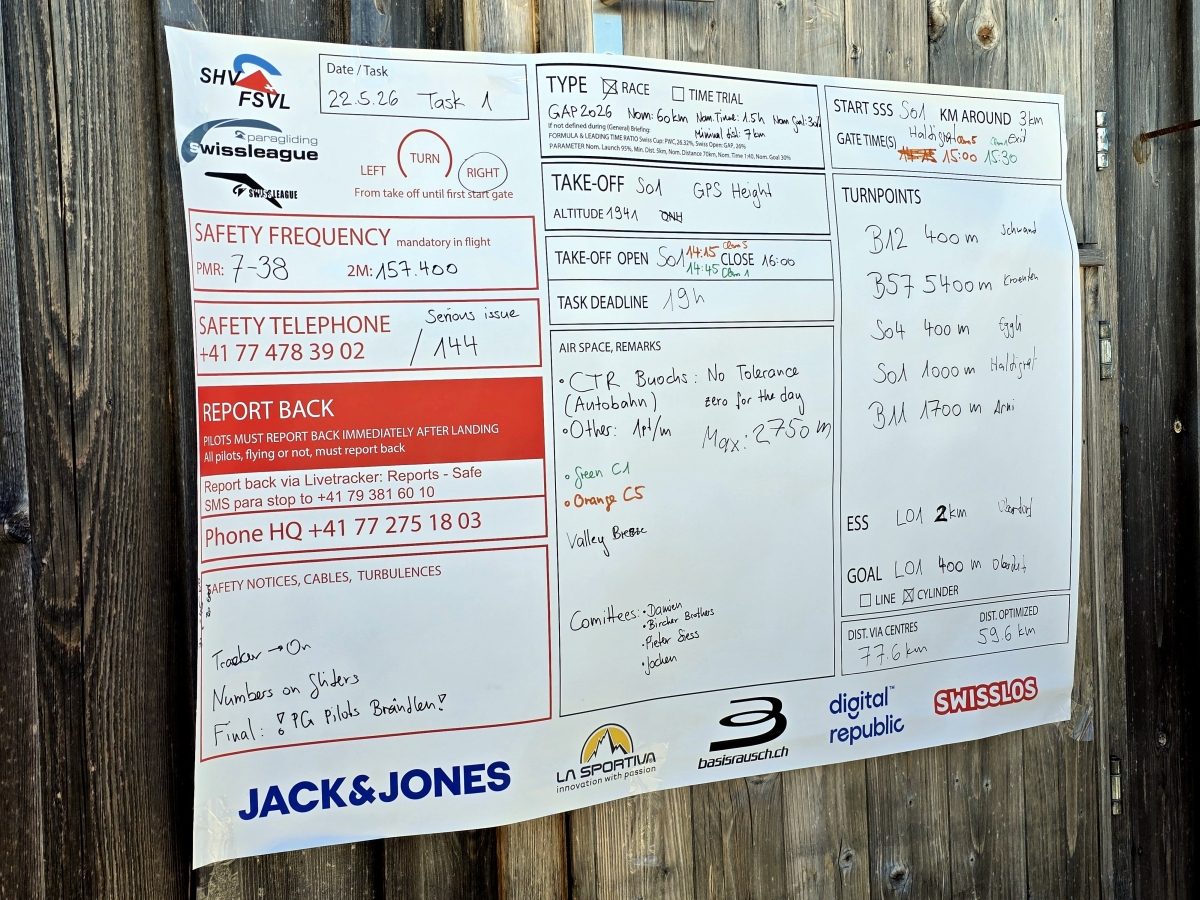 SHV
FSVL
paragliding
swissleague
SWISSLEAGUE
Date / Task
22.5.26 Task 1
LEFT TURN RIGHT
From take off until first start gate
SAFETY FREQUENCY mandatory in flight
PMR: 7-38 2M: 157.400
SAFETY TELEPHONE Serious issue
+41 77 478 39 02 / 144
REPORT BACK
PILOTS MUST REPORT BACK IMMEDIATELY AFTER LANDING
All pilots, flying or not, must report back
Report back via Livetracker: Reports - Safe
SMS para stop to +41 79 381 60 10
Phone HQ +41 77 275 18 03
SAFETY NOTICES, CABLES, TURBULENCES
Tracker → On
Numbers on Gliders
Final: ! PG Pilots Brändlen!
TYPE RACE TIME TRIAL
GAP2026 Nom: 60km Nom.Time: 1.5h Nom Goal: 
Minimal dist: 7km
If not defined during (General) Briefing:
FORMULA & LEADING TIME RATIO Swiss Cup: PWC, 26.32%, Swiss Open: GAP, 26%
PARAMETER Nom. Launch 95%, Min. Dist. 5km, Nom. Distance 70km, Nom. Time 1:40, Nom. Goal 30%
TAKE-OFF S01 GPS Height
ALTITUDE 1941 QNH
TAKE-OFF OPEN S01 14:15 Class 5 CLOSE 16:00
14:45 Class 1
TASK DEADLINE 19h
AIR SPACE, REMARKS
• CTR Buochs: No Tolerance
(Autobahn) zero for the day
• Other: 1pt/m Max: 2750 m
• Green C1
• Orange C5
Valley
Comittees: • Damien
• Bircher Brothers
• Pieter Siess
• Jochen
START SSS S01 KM AROUND 3km
Haldigrat Exit
GATE TIME(S) 15:00 15:30
TURNPOINTS
B12 400m Schwand
B57 5400m
S04 400m Eggli
S01 1000m Haldigrat
B11 1700m Arni
ESS L01 2km Oberdorf
GOAL L01 400m Oberdorf
LINE CYLINDER
DIST. VIA CENTRES DIST. OPTIMIZED
77.6 km 59.6 km
JACK&JONES
LA SPORTIVA
innovation with passion
basisrausch.ch
digital™
republic
SWISSLOS